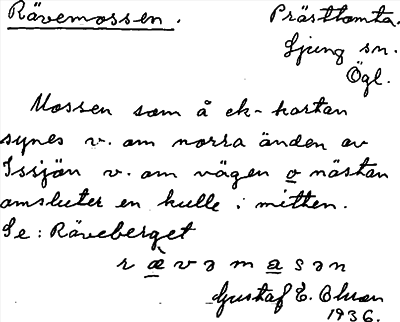 Rävemossen. Prästtomta.
Ljung sn.
Ögl.
Mossen som å ek-kartan
synes v. om norra änden av
Issjön v. om vägen o nästan
omsluter en kulle i mitten.
Se: Räveberget
r æ̀ v ə m a s ə n
Gustaf E. Olsson
1936.